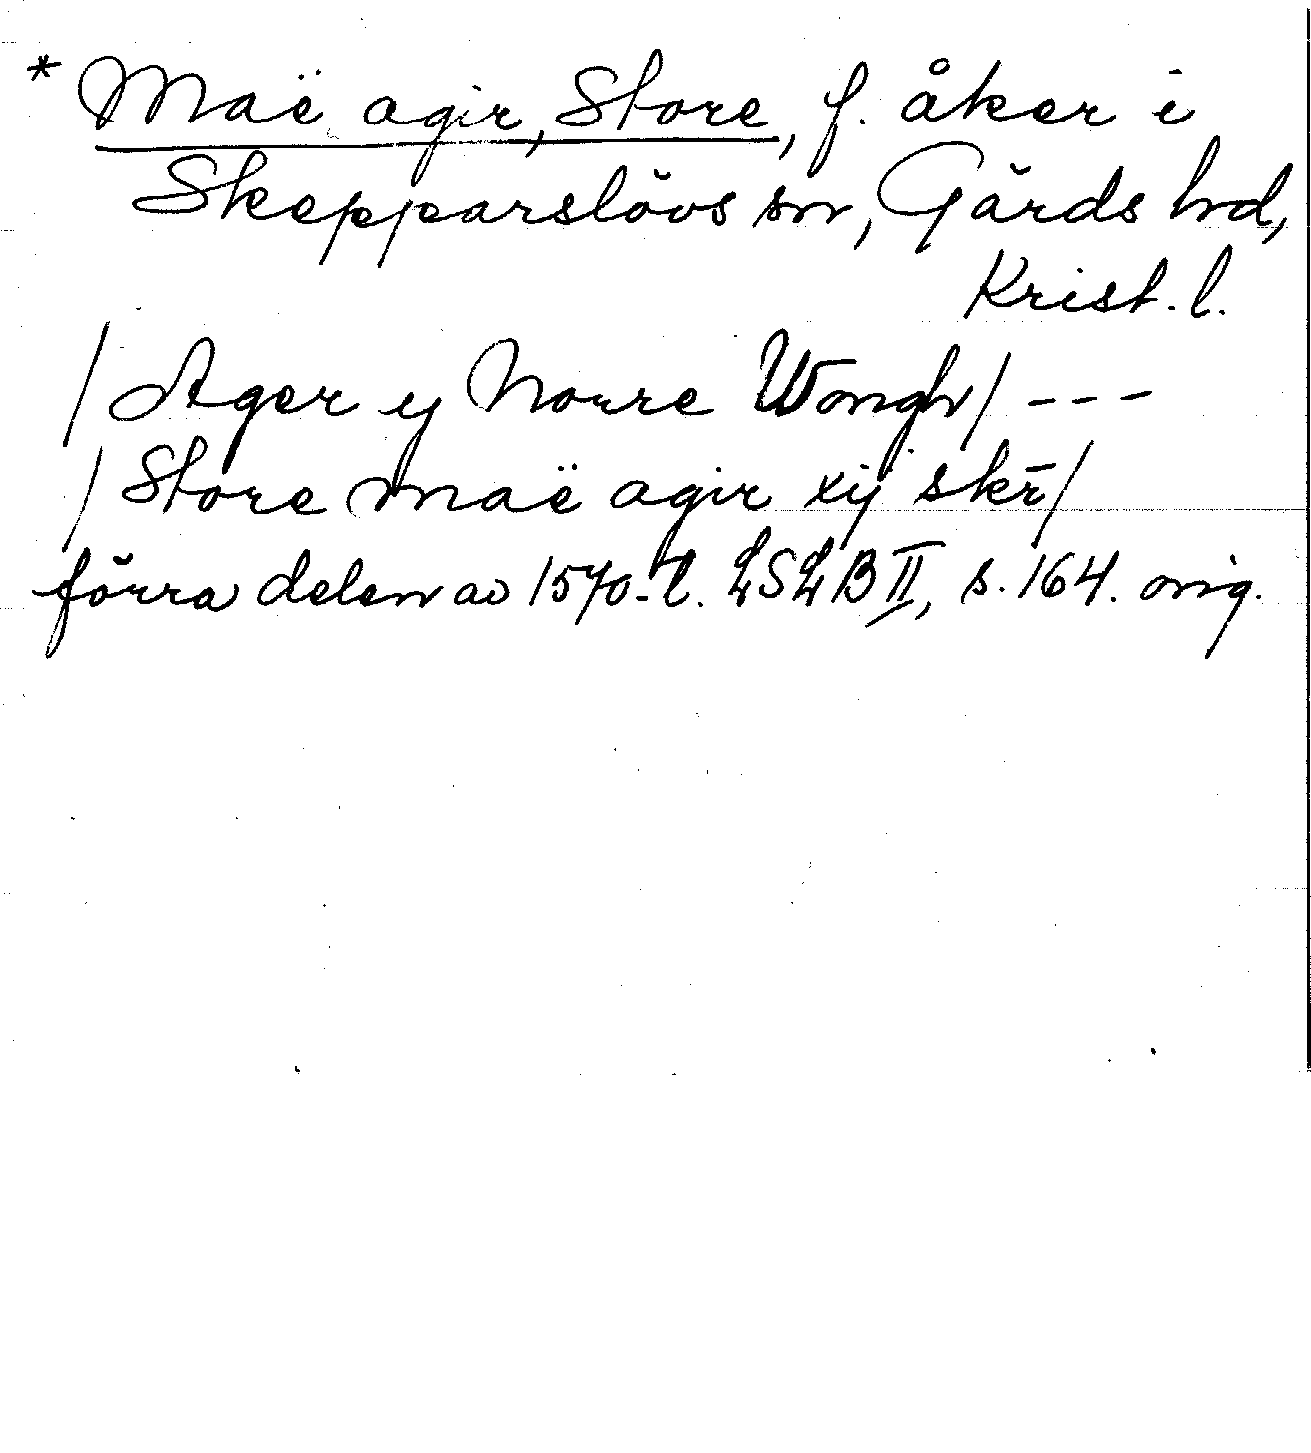 * Maë agir, Store, f. åker i
Skepparslövs sn, Gärds hd,
Krist. l.
/Ager y Norre Wongh/ ---
/Store maë agir xij skr̄/
förra delen av 1570-t. LSLB II, s. 164. orig.